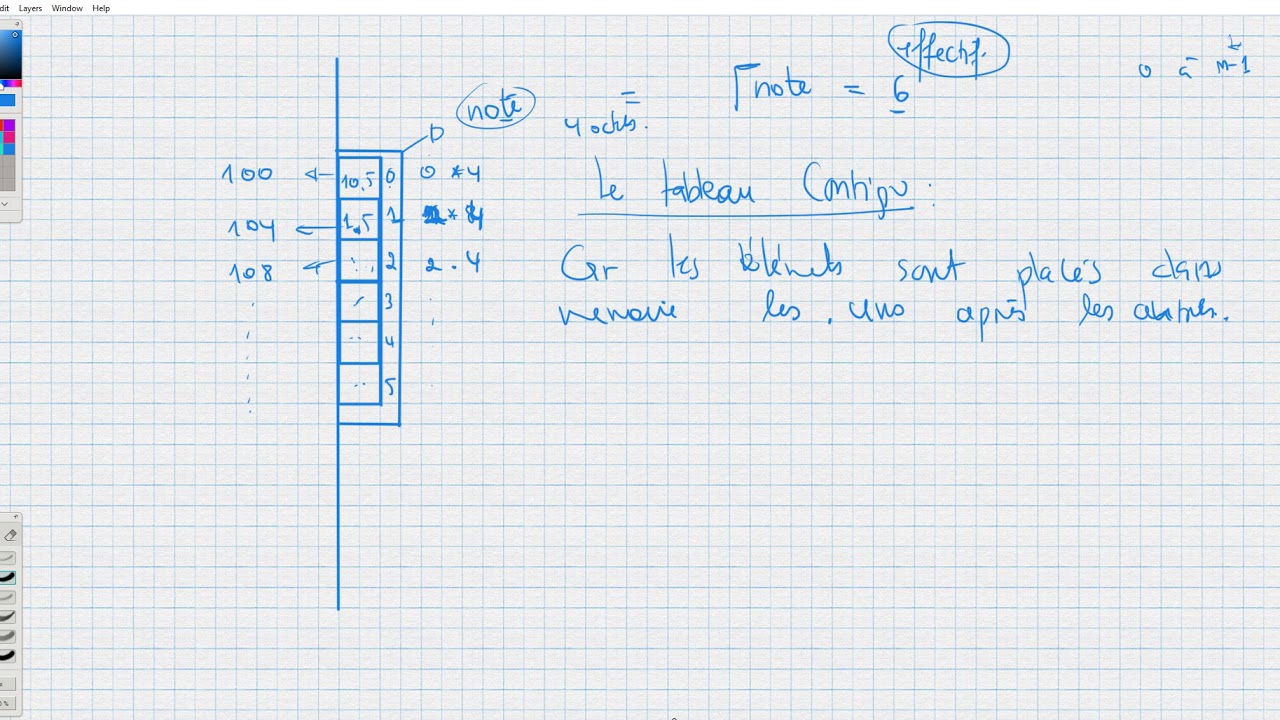 dit Layers Window Help
effectif.
0 à n-1
note = 6
note
4 octets.
D
100 10,5 0 0 * 4
104 1,5 1 * 4
108 2 2 . 4
3
4
5
Le tableau Contigu :
Car les éléments sont placés dans
memoire les uns après les autres.